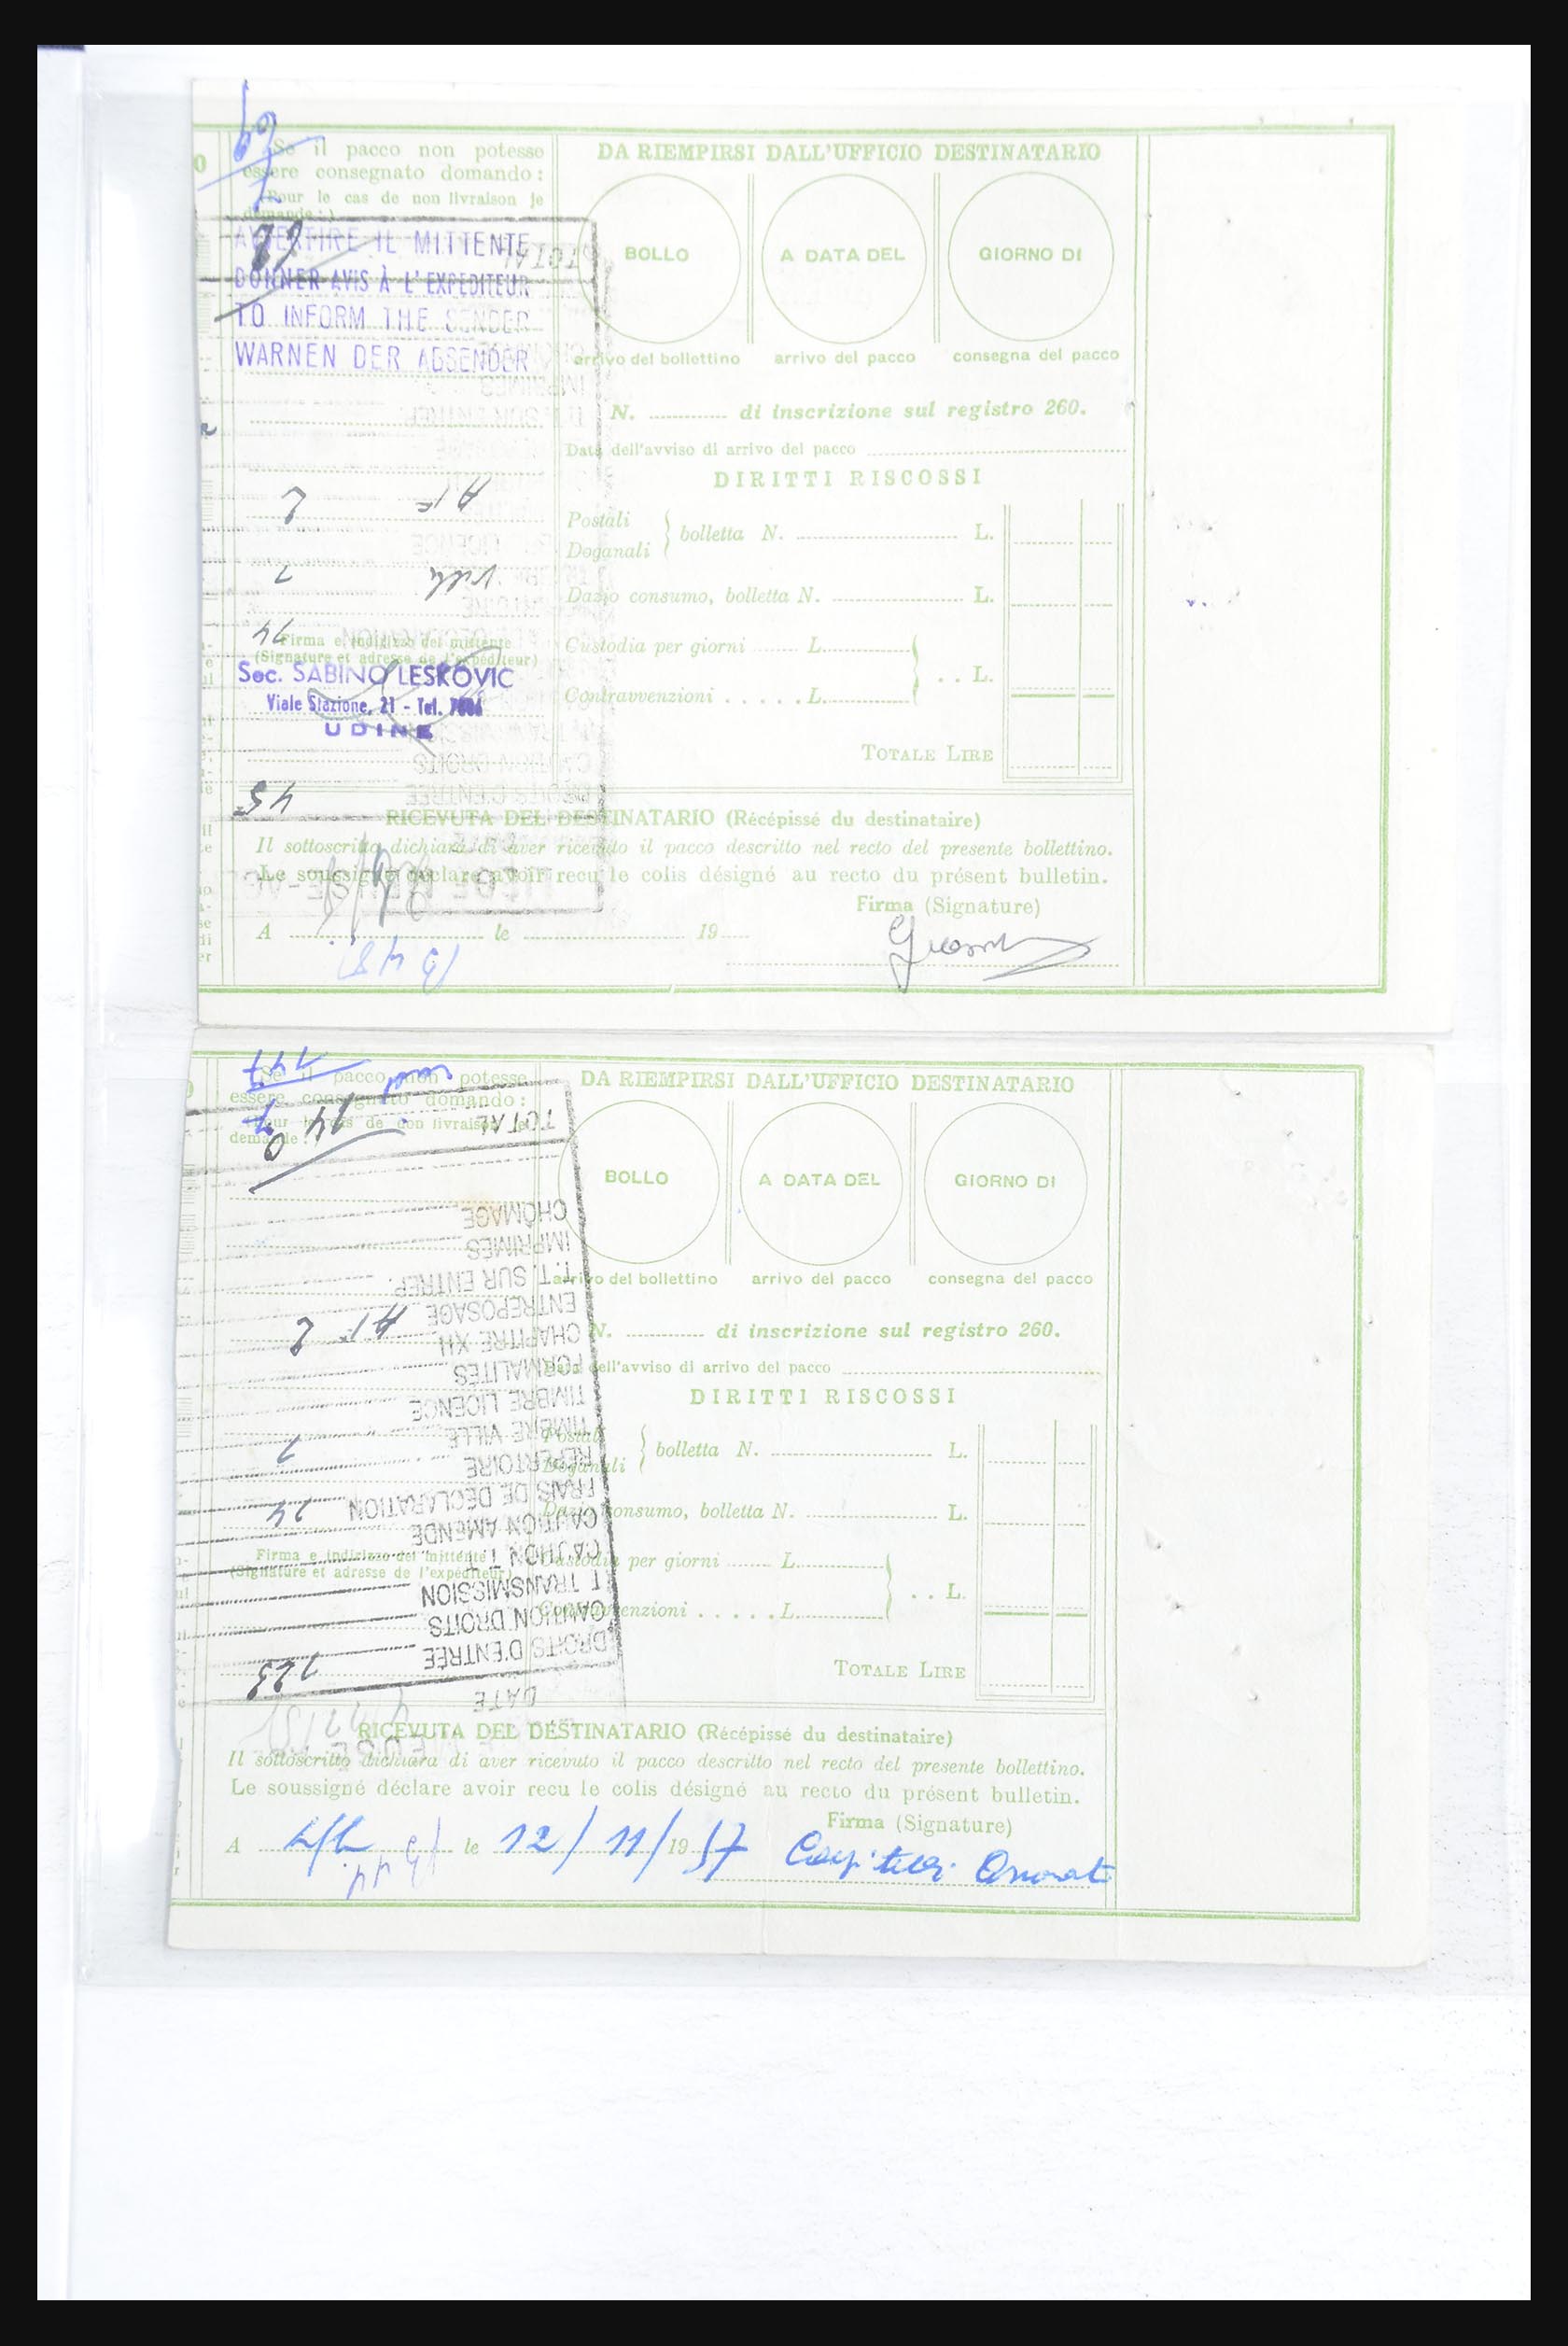 Se il pacco non potesse
essere consegnato domando:
(Pour le cas de non livraison je
demande:)
AVVERTIRE IL MITTENTE
DONNER AVIS À L'EXPEDITEUR
TO INFORM THE SENDER
WARNEN DER ABSENDER
TOTAL
Firma e indirizzo del mittente
(Signature et adresse de l'expéditeur)
Soc. SABINO LESKOVIC
Viale Stazione, 21 - Tel.
UDINE
DA RIEMPIRSI DALL'UFFICIO DESTINATARIO
BOLLO A DATA DEL GIORNO DI
arrivo del bollettino arrivo del pacco consegna del pacco
N. di inscrizione sul registro 260.
Data dell'avviso di arrivo del pacco
DIRITTI RISCOSSI
Postali
Doganali } bolletta N. L.
Dazio consumo, bolletta N. L.
Custodia per giorni L.
Contravvenzioni . . . . . L. } . . L.
TOTALE LIRE
RICEVUTA DEL DESTINATARIO (Récépissé du destinataire)
Il sottoscritto dichiara di aver ricevuto il pacco descritto nel recto del presente bollettino.
Le soussigné déclare avoir recu le colis désigné au recto du présent bulletin.
Firma (Signature)
A le 19
Se il pacco non potesse
essere consegnato domando:
(Pour le cas de non livraison je
demande:
TOTAL
CHÔMAGE
IMPRIMES
T.T. SUR ENTREP.
ENTREPOSAGE
CHAPITRE XII
FORMALITÉS
TIMBRE LICENCE
TIMBRE VILLE
REPERTOIRE
FRAIS DE DECLARATION
CAUTION AMENDE
CAUTION T.T.
T TRANSMISSION
CAUTION DROITS
DROITS D'ENTRÉE
DATE
Firma e indirizzo del mittente
(Signature et adresse de l'expéditeur)
DA RIEMPIRSI DALL'UFFICIO DESTINATARIO
BOLLO A DATA DEL GIORNO DI
arrivo del bollettino arrivo del pacco consegna del pacco
N. di inscrizione sul registro 260.
Data dell'avviso di arrivo del pacco
DIRITTI RISCOSSI
Postali
Doganali } bolletta N. L.
Dazio consumo, bolletta N. L.
Custodia per giorni L.
Contravvenzioni . . . . . L. } . . L.
TOTALE LIRE
RICEVUTA DEL DESTINATARIO (Récépissé du destinataire)
Il sottoscritto dichiara di aver ricevuto il pacco descritto nel recto del presente bollettino.
Le soussigné déclare avoir recu le colis désigné au recto du présent bulletin.
Firma (Signature)
A le 12/11/1957